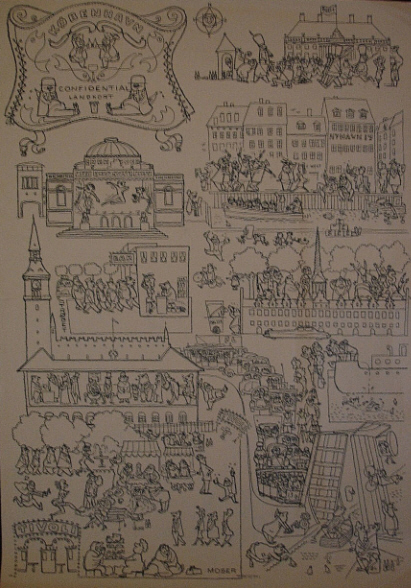 KØBENHAVN
CONFIDENTIAL
LANDKORT
NYHAVN 15
TIVOLI
MOSER